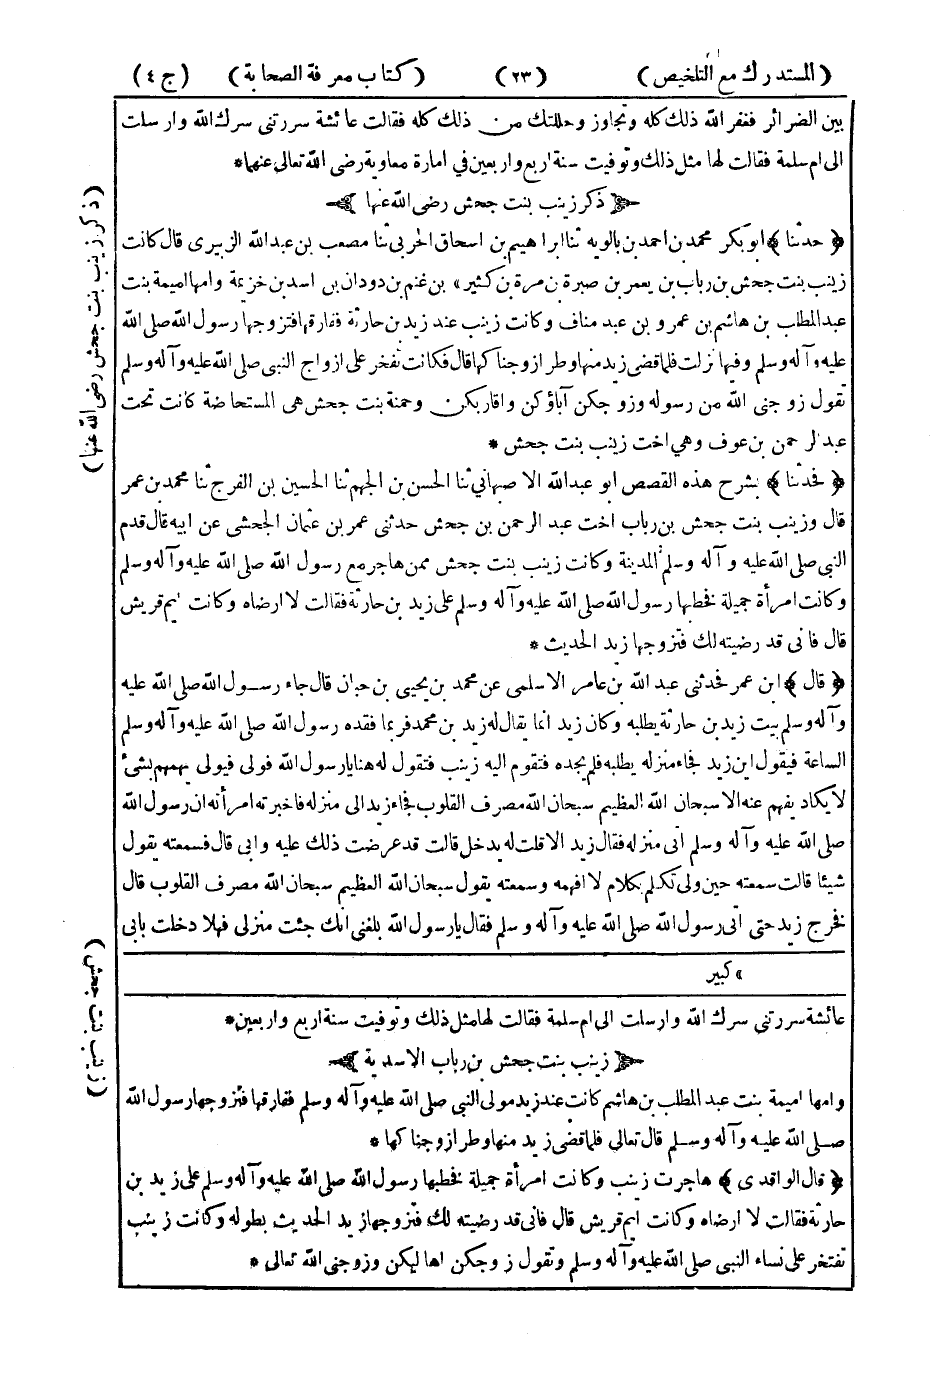 (المستدرك مع التلخيص) (٢٣) (كتاب معرفة الصحابة) (ج ٤)
بين الضرائر فغفر الله ذلك كله وتجاوز وحللتك من ذلك كله فقالت عائشة سررتنى سرك الله وارسلت
الى ام سلمة فقالت لها مثل ذلك وتوفيت سنة اربع واربعين في امارة معاوية رضى الله تعالى عنهما*
ذكر زينب بنت جحش رضى الله عنها
﴿ حدثنا ﴾ ابو بكر محمد بن احمد بن بالويه ثنا ابراهيم بن اسحاق الحربي ثنا مصعب بن عبد الله الزبيرى قال كانت
زينب بنت جحش بن رباب بن يعمر بن صبرة بن مرة بن كثير» بن غنم بن دودان بن اسد بن خزيمة وامها اميمة بنت
عبد المطلب بن هاشم بن عمرو بن عبد مناف وكانت زينب عند زيد بن حارثة ففارقها فتزوجها رسول الله صلى الله
عليه وآله وسلم وفيها نزلت فلما قضى زيد منها وطرا زوجنا كها قال فكانت تفخر على ازواج النبي صلى الله عليه وآله وسلم
تقول زوجنى الله من رسوله وزوجكن آباؤكن واقاربكن وحمنة بنت جحش هى المستحاضة كانت تحت
عبد الرحمن بن عوف وهي اخت زينب بنت جحش *
﴿ فحدثنا ﴾ بشرح هذه القصص ابو عبد الله الاصبهاني ثنا الحسن بن الجهم ثنا الحسين بن الفرج ثنا محمد بن عمر
قال وزينب بنت جحش بن رباب اخت عبد الرحمن بن جحش حدثنى عمر بن عثمان الجحشى عن ابيه قال قدم
النبي صلى الله عليه وآله وسلم المدينة وكانت زينب بنت جحش ممن هاجر مع رسول الله صلى الله عليه وآله وسلم
وكانت امرأة جميلة فخطبها رسول الله صلى الله عليه وآله وسلم على زيد بن حارثة فقالت لا ارضاه وكانت ايم قريش
قال فانى قد رضيته لك فتزوجها زيد الحديث *
﴿ قال ﴾ ابن عمر فحدثنى عبد الله بن عامر الاسلمى عن محمد بن يحيى بن حبان قال جاء رسول الله صلى الله عليه
وآله وسلم بيت زيد بن حارثة يطلبه وكان زيد انما يقال له زيد بن محمد فربما فقده رسول الله صلى الله عليه وآله وسلم
الساعة فيقول اين زيد فجاء منزله يطلبه فلم يجده فتقوم اليه زينب فتقول له هنا يا رسول الله فولى فيولى يهمهم بشئ
لا يكاد يفهم عنه الا سبحان الله العظيم سبحان الله مصرف القلوب فجاء زيد الى منزله فاخبرته امرأته ان رسول الله
صلى الله عليه وآله وسلم أتى منزله فقال زيد الا قلت له يدخل قالت قد عرضت ذلك عليه وابى قال فسمعته يقول
شيئا قالت سمعته حين ولى تكلم بكلام لا افهمه وسمعته يقول سبحان الله العظيم سبحان الله مصرف القلوب قال
فخرج زيد حتى أتى رسول الله صلى الله عليه وآله وسلم فقال يا رسول الله بلغنى انك جئت منزلى فهلا دخلت بابى
» كبير
عائشة سررتنى سرك الله وارسلت الى ام سلمة فقالت لها مثل ذلك وتوفيت سنة اربع واربعين*
زينب بنت جحش بن رباب الاسدية
وامها اميمة بنت عبد المطلب بن هاشم كانت عند زيد مولى النبي صلى الله عليه وآله وسلم ففارقها فتزوجها رسول الله
صلى الله عليه وآله وسلم قال تعالى فلما قضى زيد منها وطرا زوجنا كها *
﴿ قال الواقدى ﴾ هاجرت زينب وكانت امرأة جميلة فخطبها رسول الله صلى الله عليه وآله وسلم على زيد بن
حارثة فقالت لا ارضاه وكانت ايم قريش قال فانى قد رضيته لك فتزوجها زيد الحديث بطوله وكانت زينب
تفتخر على نساء النبي صلى الله عليه وآله وسلم وتقول زوجكن اهاليكن وزوجنى الله تعالى *
(ذكر زينب بنت جحش رضى الله عنها)
(زينب بنت جحش)